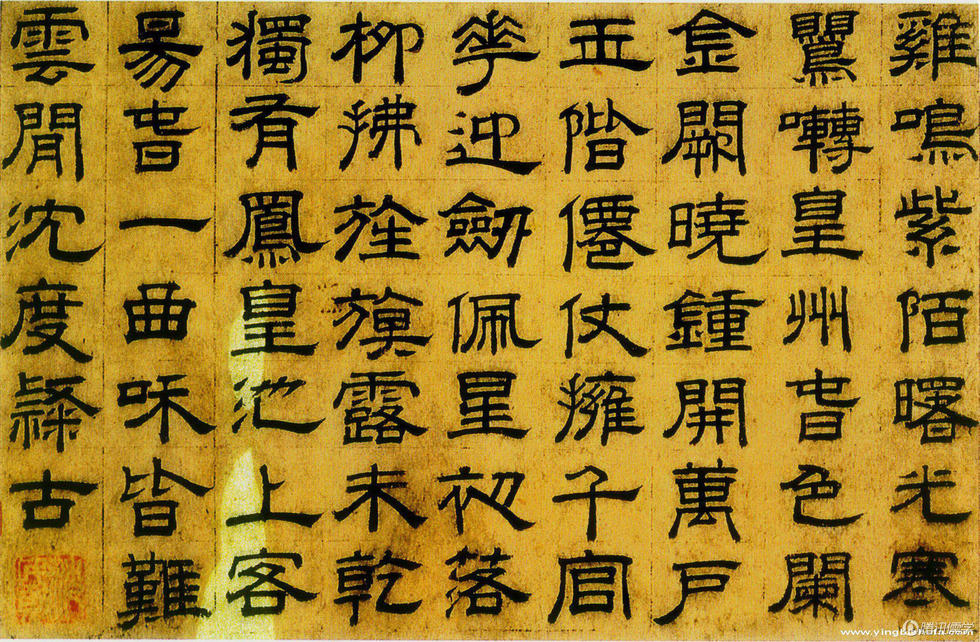 雞鳴紫陌曙光寒
鸎囀皇州旾色闌
金闕曉鍾開萬戶
玉階僊仗擁千官
花迎劒佩星初落
柳拂旌旗露未乾
獨有鳳皇池上客
昜旾一曲咊皆難
雲閒沈度隸古
腾讯儒学